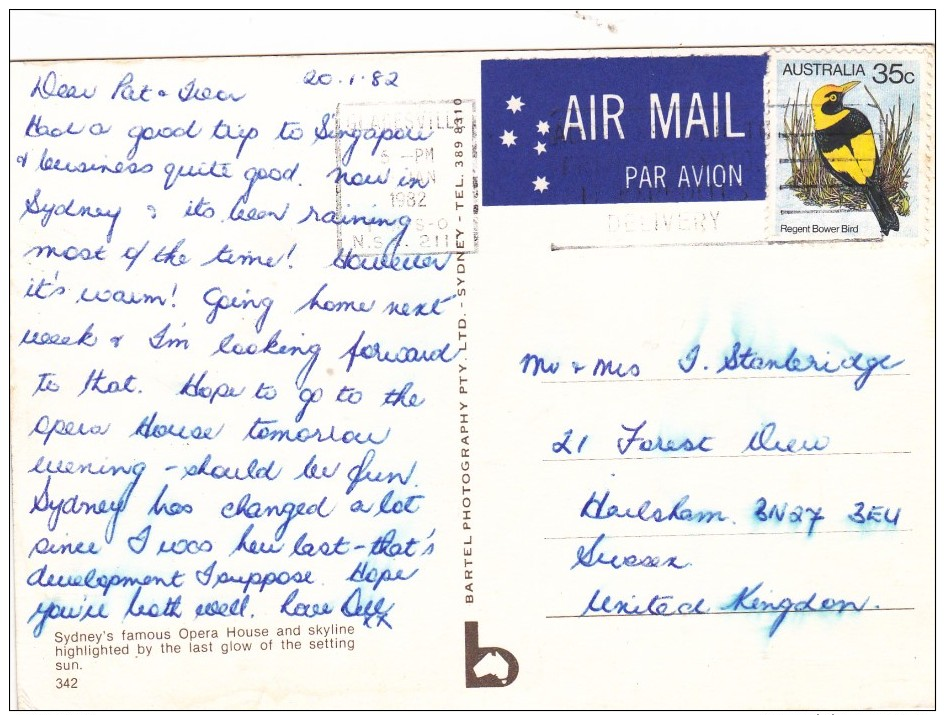 20.1.82
Dear Pat & Ivor
Had a good trip to Singapore
& business quite good. Now in
Sydney & its been raining
most of the time! However
it's warm! Going home next
week & I'm looking forward
to that. Hope to go to the
Opera House tomorrow
evening - should be fun.
Sydney has changed a lot
since I was here last - that's
development I suppose. Hope
you're both well. Love
xx
Sydney's famous Opera House and skyline
highlighted by the last glow of the setting
sun.
342
BARTEL PHOTOGRAPHY PTY. LTD. - SYDNEY - TEL. 389 8310
b
GLADESVILLE
5 -PM
JAN
1982
N.S.W. 211
AIR MAIL
PAR AVION
DELIVERY
AUSTRALIA 35c
Regent Bower Bird
Mr & Mrs I. Stanbridge
21 Forest View
Hailsham BN27 3EU
Sussex
United Kingdom.